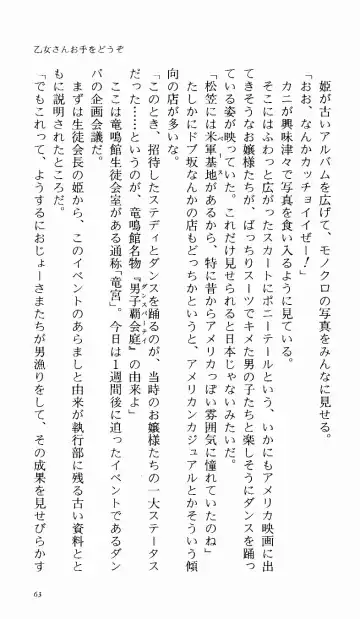 乙女さんお手をどうぞ
姫が古いアルバムを広げて、モノクロの写真をみんなに見せる。
「おお、なんかカッチョイイぜー！」
カニが興味津々で写真を食い入るように見ている。
そこにはふわっと広がったスカートにポニーテールという、いかにもアメリカ映画に出
てきそうなお嬢様たちが、ばっちりスーツでキメた男の子たちと楽しそうにダンスを踊っ
ている姿が映っていた。これだけ見せられると日本じゃないみたいだ。
「松笠には米軍基地があるから、特に昔からアメリカっぽい雰囲気に憧れていたのね」
たしかにドブ坂なんかの店もどっちかというと、アメリカンカジュアルとかそういう傾
向の店が多いな。
「このとき、招待したステディとダンスを踊るのが、当時のお嬢様たちの一大ステータス
だった！――というのが、竜鳴館名物『男子覇会庭』の由来よ」
ダンスパーティ
ここは竜鳴館生徒会室がある通称「竜宮」。今日は１週間後に迫ったイベントであるダン
パの企画会議だ。
まずは生徒会長の姫から、このイベントのあらましと由来が執行部に残る古い資料とと
もに説明されたところだ。
「でもこれって、ようするにおじょーさまたちが男漁りをして、その成果を見せびらかす
63